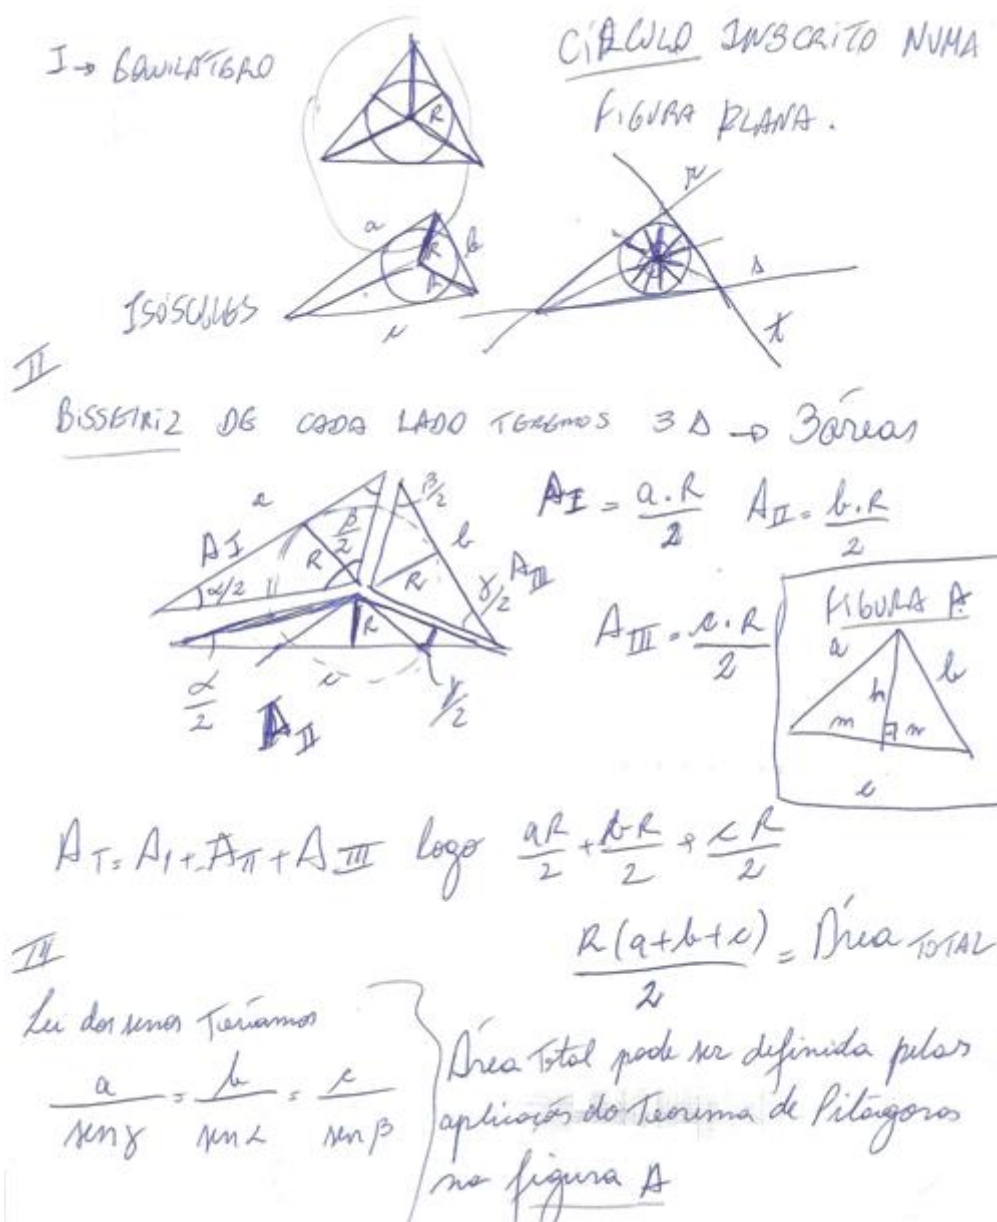 I → EQUILÁTERO
CÍRCULO INSCRITO NUMA
FIGURA PLANA.
R
r
a
b
R
R
s
ISÓSCULES
c
t
II
BISSETRIZ DE CADA LADO TEREMOS 3 Δ → 3 áreas
a
β/2
A I = a.R/2 A II = b.R/2
A I
R
β/2
b
α/2
R
γ/2
A III
A III = c.R/2
FIGURA A
R
a
b
h
m
n
α/2
c
γ/2
A II
c
A T = A I + A II + A III logo aR/2 + bR/2 + cR/2
III
R(a+b+c)/2 = Área TOTAL
Lei dos senos Teríamos
a/sen γ = b/sen α = c/sen β
Área Total pode ser definida pelas
aplicações do Teorema de Pitágoras
na figura A